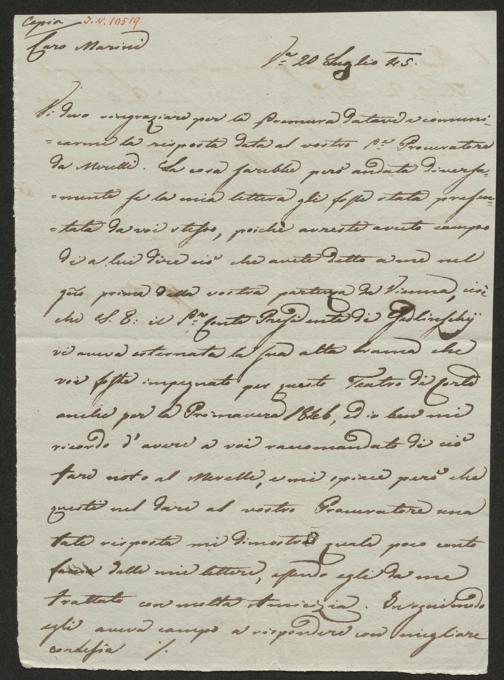 Copia J.N. 10519
Caro Marini
Va 20 Luglio 45.
Vi devo ringraziare per la premura datavi a comuni-
=carmi la risposta data al vostro Sr Procuratore
da Merelli. La cosa sarebbe però andata diversa-
=mente se la mia lettera gli fosse stata presen-
=tata da voi stesso, poichè avreste avuto campo
di a lui dire ciò che avete detto a me nel
gno prima della vostra partenza da Vienna, cioè
che S. E: il Sr Conte Presidente di
vi aveva esternata la sua alta brama che
voi foste impegnato per questo Teatro di Corte
anche per la Primavera 1846, ed io ben mi
ricordo d'avere a voi raccomandato di ciò
fare noto al Merelli, e mi spiace però che
questi nel dare al vostro Procuratore una
tale risposta mi dimostrò quale poco conto
faccia delle mie lettere, essendo egli da me
trattato con molta Amicizia.
egli aveva campo a rispondere con migliore
cortesia /.